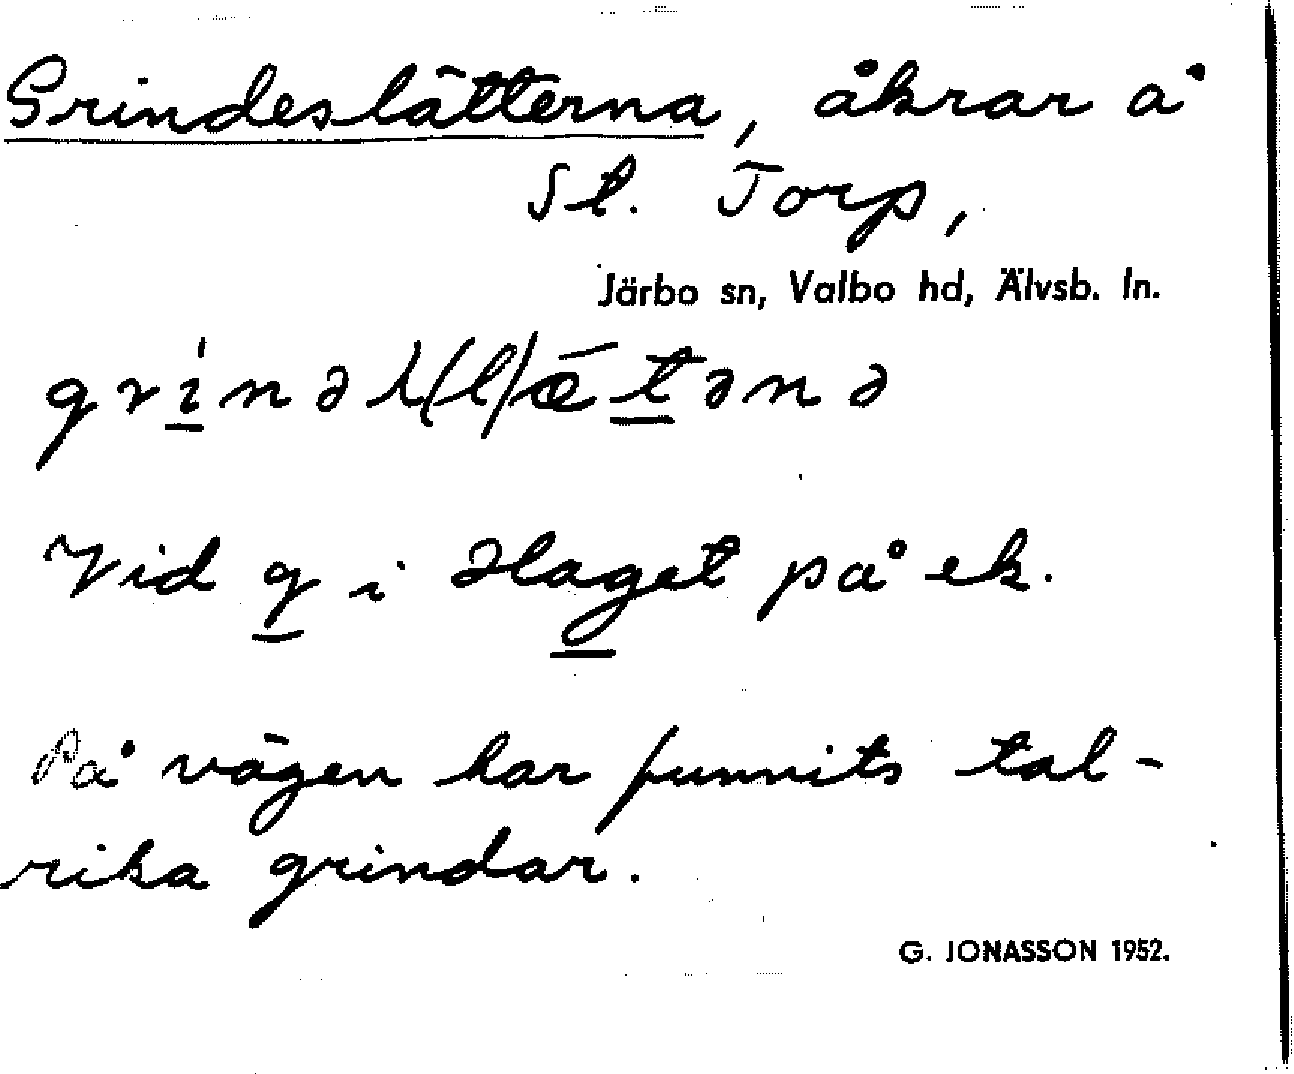 Grindeslätterna, åkrar å
St. Torp,
Järbo sn, Valbo hd, Älvsb. ln.
Vid g i Haget på ek.
På vägen har funnits tal-
rika grindar.
G. JONASSON 1952.